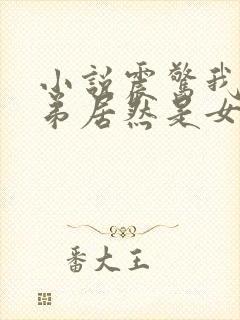 小説震驚我
弟居然是女
番大王